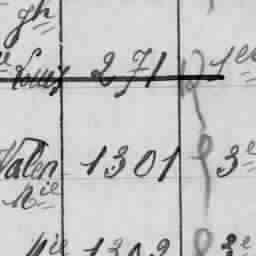 gh
Louis 271 1er
Valen 1301 3e
Nie
Nie 1302 3e